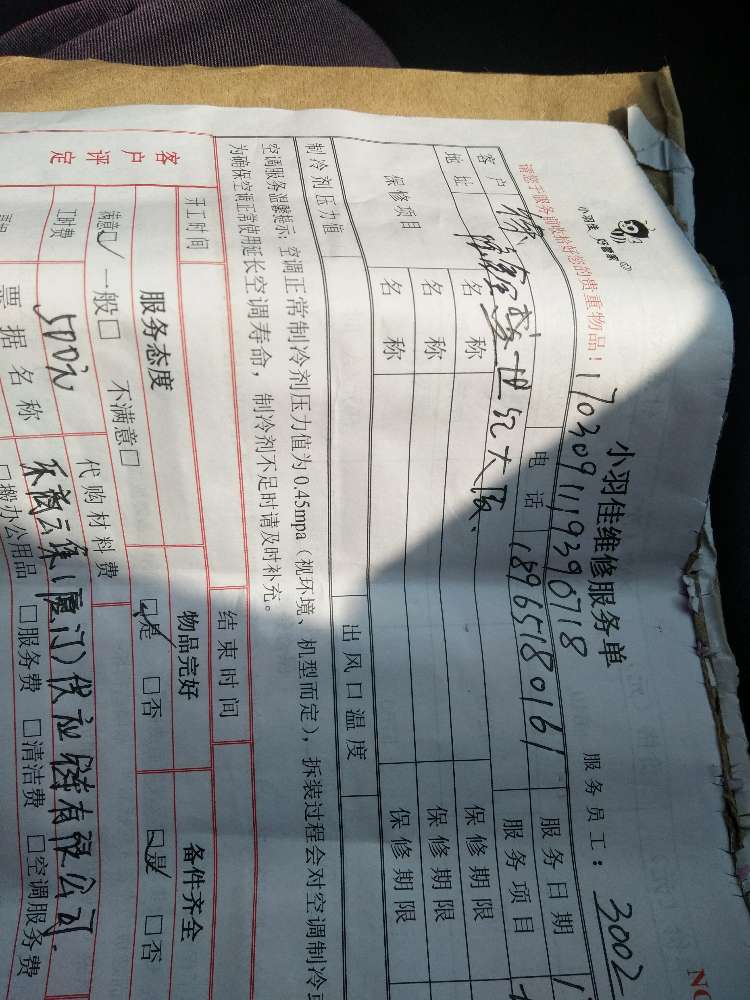 小羽佳 好管家
小羽佳维修服务单
服务员工：3002
NO
请您于服务前收拾好您的贵重物品！
1703091119390718
客户
电话
18965180161
服务日期
地址
世纪大厦.
服务项目
保修项目
名称
保修期限
名称
保修期限
名称
保修期限
制冷剂压力值
出风口温度
空调服务温馨提示：空调正常制冷剂压力值为0.45mpa（视环境、机型而定），拆装过程会对空调制冷
为确保空调正常使用延长空调寿命，制冷剂不足时请及时补充。
开工时间
结束时间
客户评定
服务态度
物品完好
备件齐全
满意☑ 一般□ 不满意□
☑是 □否
☑是 □否
工时费
500元
代购材料费
票据名称
禾菽云集(厦门)供应链有限公司.
□搬办公用品 □服务费 □清洁费 □空调服务费